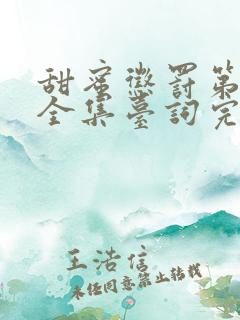 甜蜜懲罰第
全集臺詞完
王浩信
未经同意禁止转载